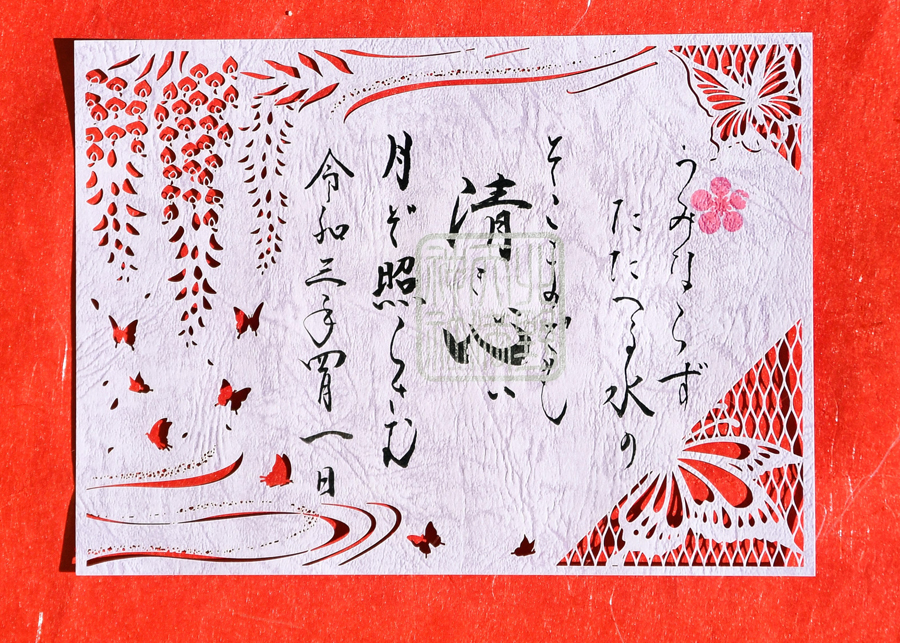 うみならず
たたへる水の
そこまでも
清き心は
月ぞ照らさむ
令和三年四月一日